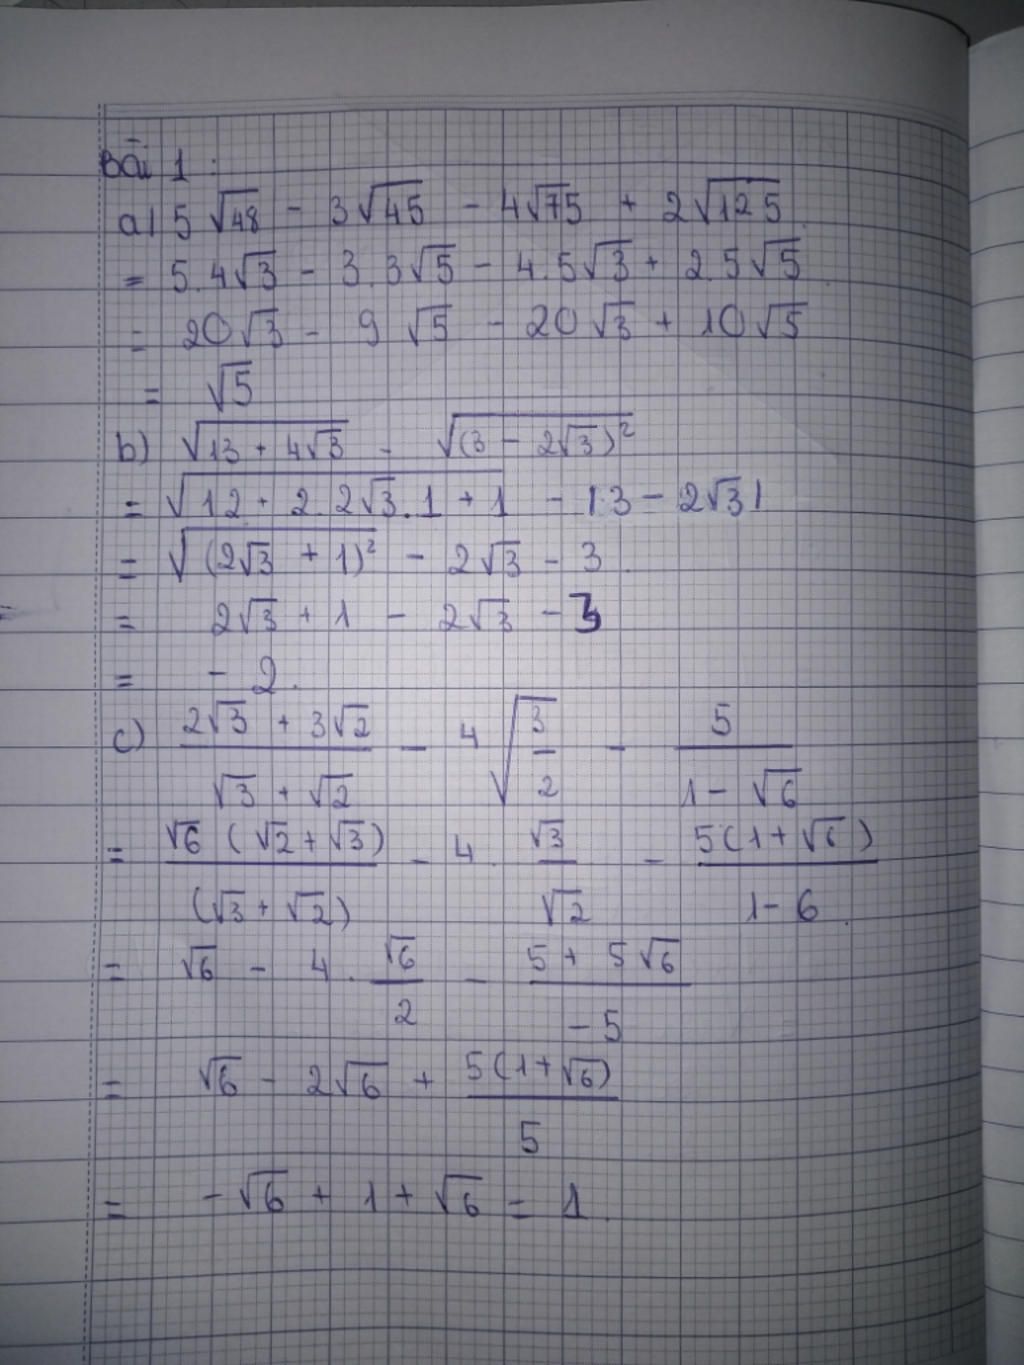 Bài 1:
a) 5√48 - 3√45 - 4√75 + 2√125
= 5.4√3 - 3.3√5 - 4.5√3 + 2.5√5
= 20√3 - 9√5 - 20√3 + 10√5
= √5
b) √(13 + 4√3) - √((3 - 2√3)²)
= √(12 + 2.2√3.1 + 1) - |3 - 2√3|
= √((2√3 + 1)²) - 2√3 - 3
= 2√3 + 1 - 2√3 - 3
= - 2.
c) (2√3 + 3√2)/(√3 + √2) - 4√(3/2) - 5/(1 - √6)
= √6 (√2 + √3)/(√3 + √2) - 4. √3/√2 - 5(1 + √6)/(1 - 6)
= √6 - 4. √6/2 - (5 + 5√6)/(-5)
= √6 - 2√6 + 5(1 + √6)/5
= -√6 + 1 + √6 = 1.